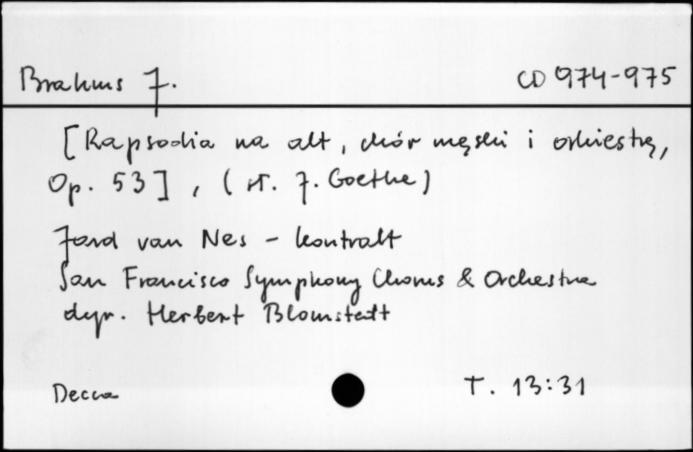 Brahms J.
CD 974-975
[Rapsodia na alt, chór męski i orkiestrę,
Op. 53], (sł. J. Goethe)
Jard van Nes - kontralt
San Francisco Symphony Chorus & Orchestra
dyr. Herbert Blomstedt
Decca
T. 13:31